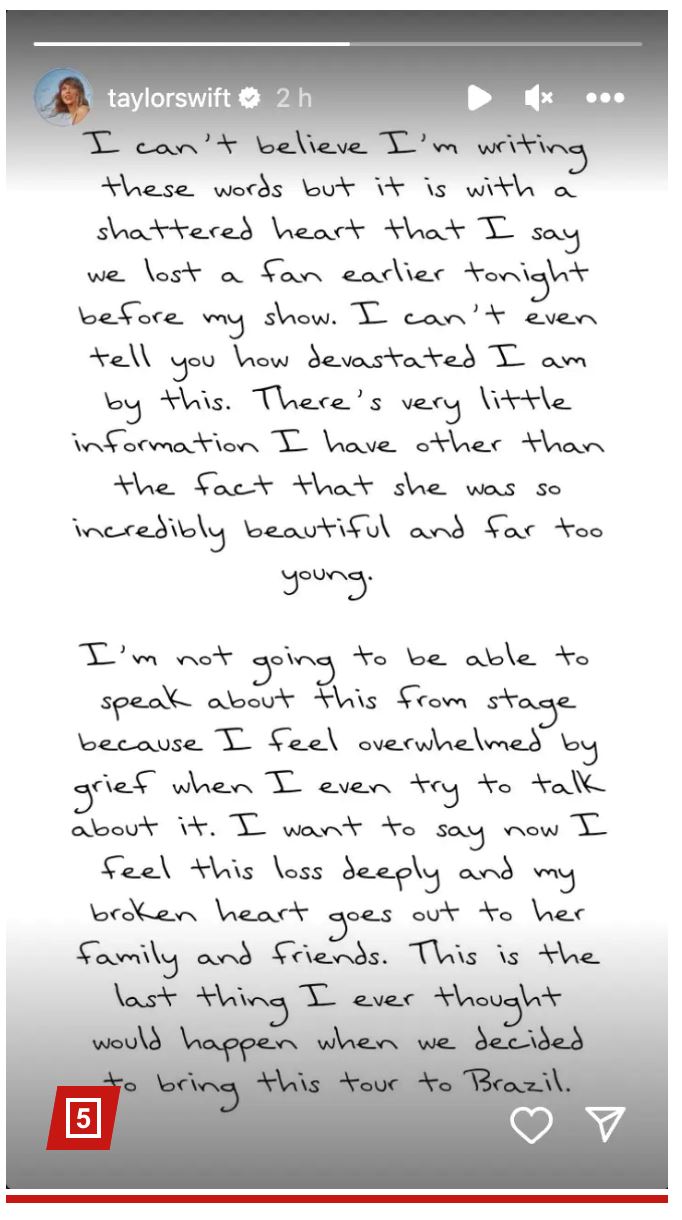 taylorswift 2 h
I can't believe I'm writing
these words but it is with a
shattered heart that I say
we lost a fan earlier tonight
before my show. I can't even
tell you how devastated I am
by this. There's very little
information I have other than
the fact that she was so
incredibly beautiful and far too
young.
I'm not going to be able to
speak about this from stage
because I feel overwhelmed by
grief when I even try to talk
about it. I want to say now I
feel this loss deeply and my
broken heart goes out to her
family and friends. This is the
last thing I ever thought
would happen when we decided
to bring this tour to Brazil.
5